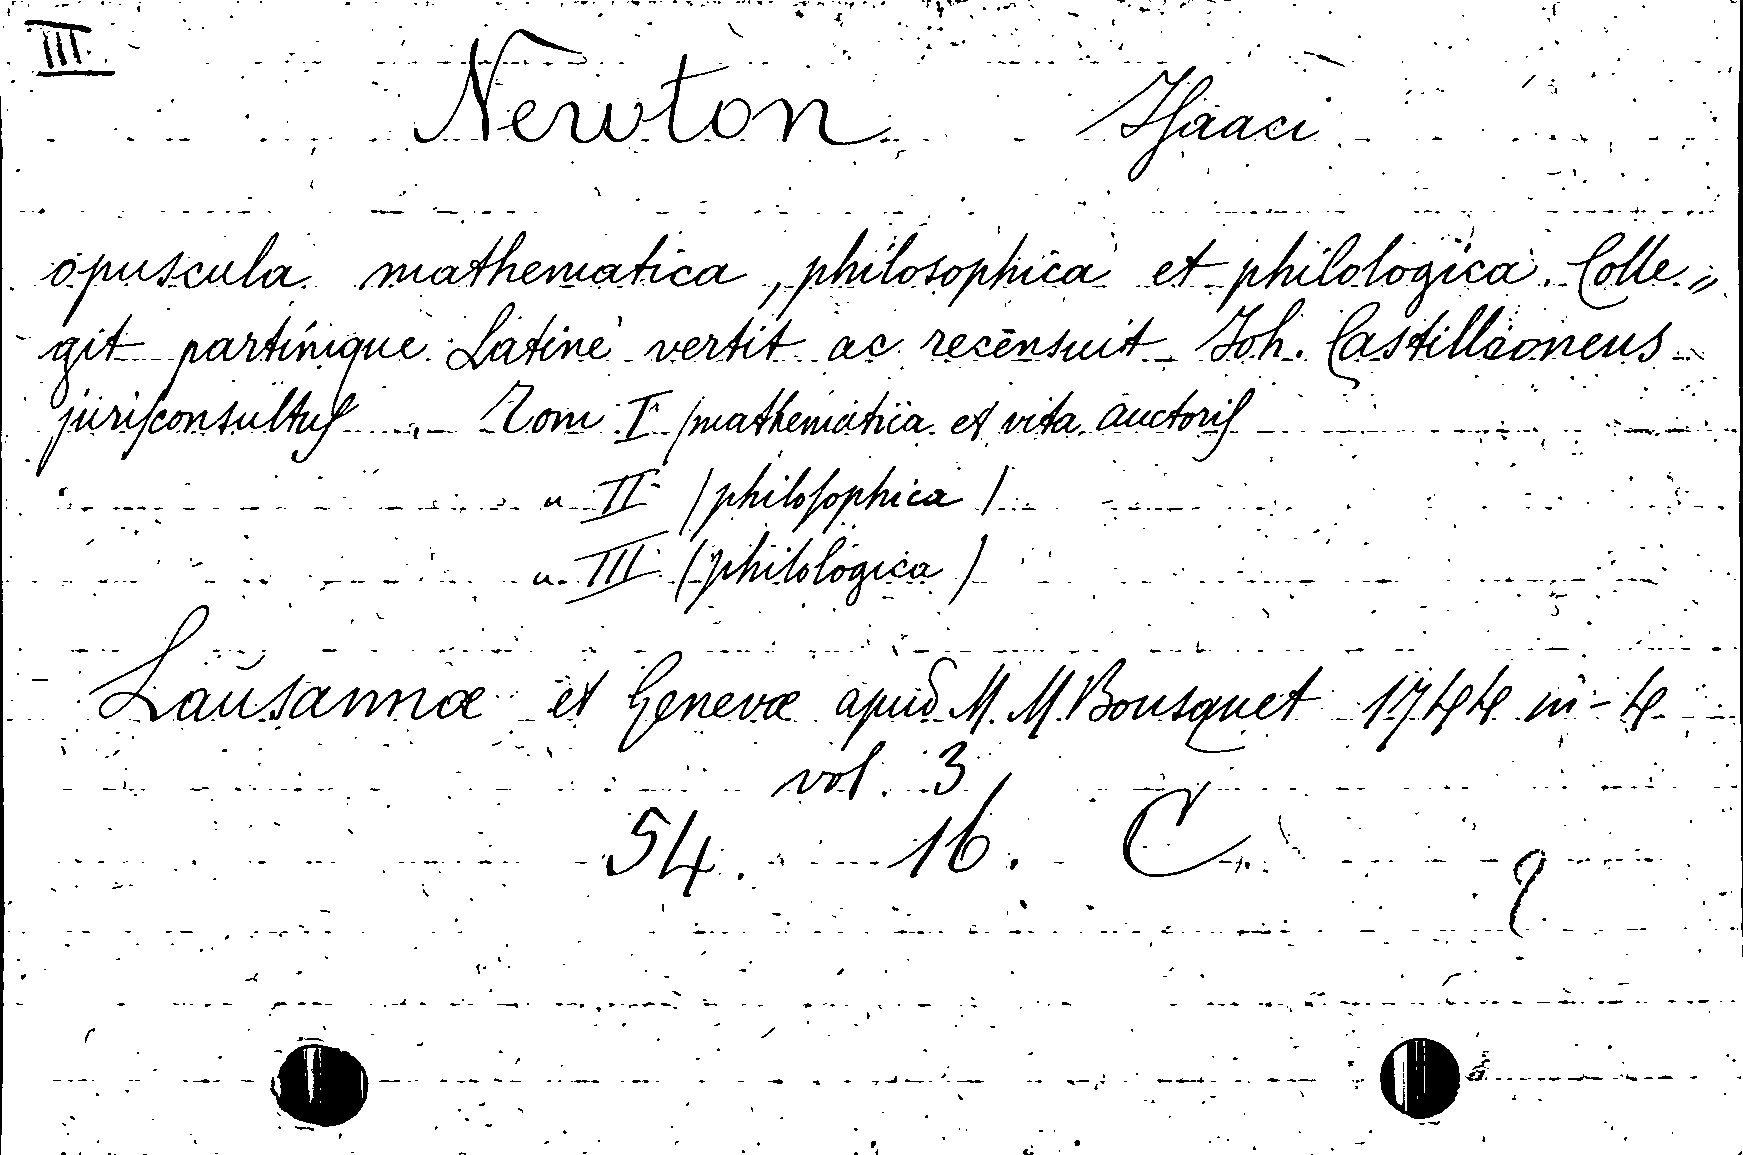 III.
Newton Iſaaci
opuscula mathematica, philosophica et philologica. Colle„
git partimque Latine vertit ac recensuit Joh. Castillioneus
juriſconsultuſ. Tom I /mathematica et vita auctoriſ
" II /philoſophica/
" III (philologica/
Lausannæ et Genevæ apud M. M. Bousquet 1744 in-4
vol. 3
54. 16. C